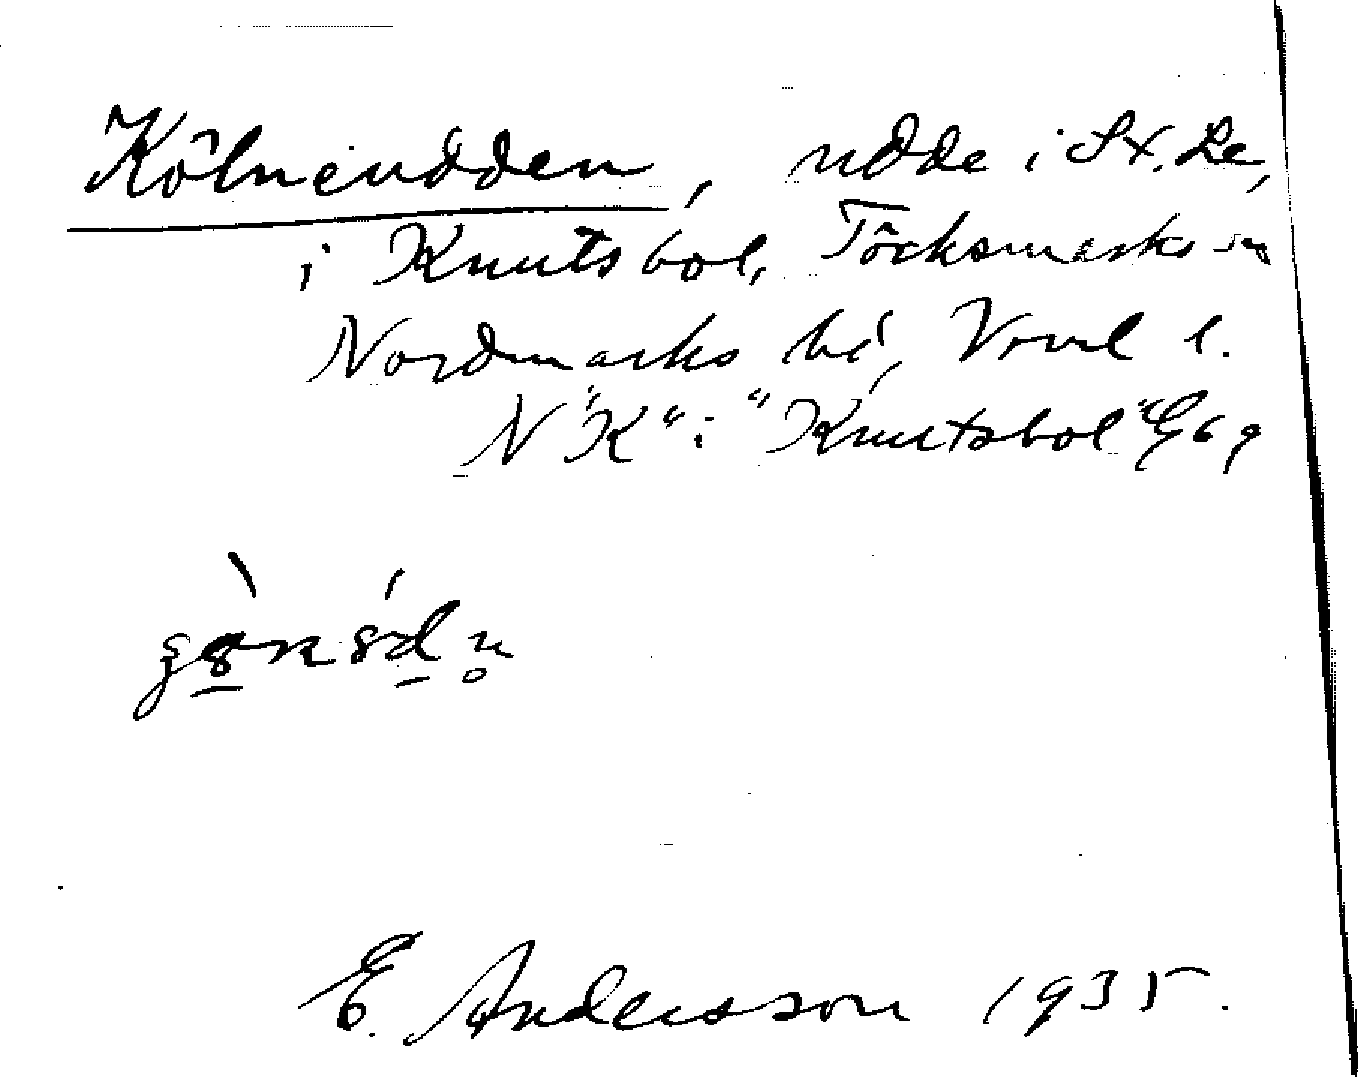 Kölneudden, udde i St. Le,
i Knutsbol, Töcksmarks sn
Nordmarks hd, Vrml l.
N "K" i "Knutsbol" Gbg
E. Andersson 1935.